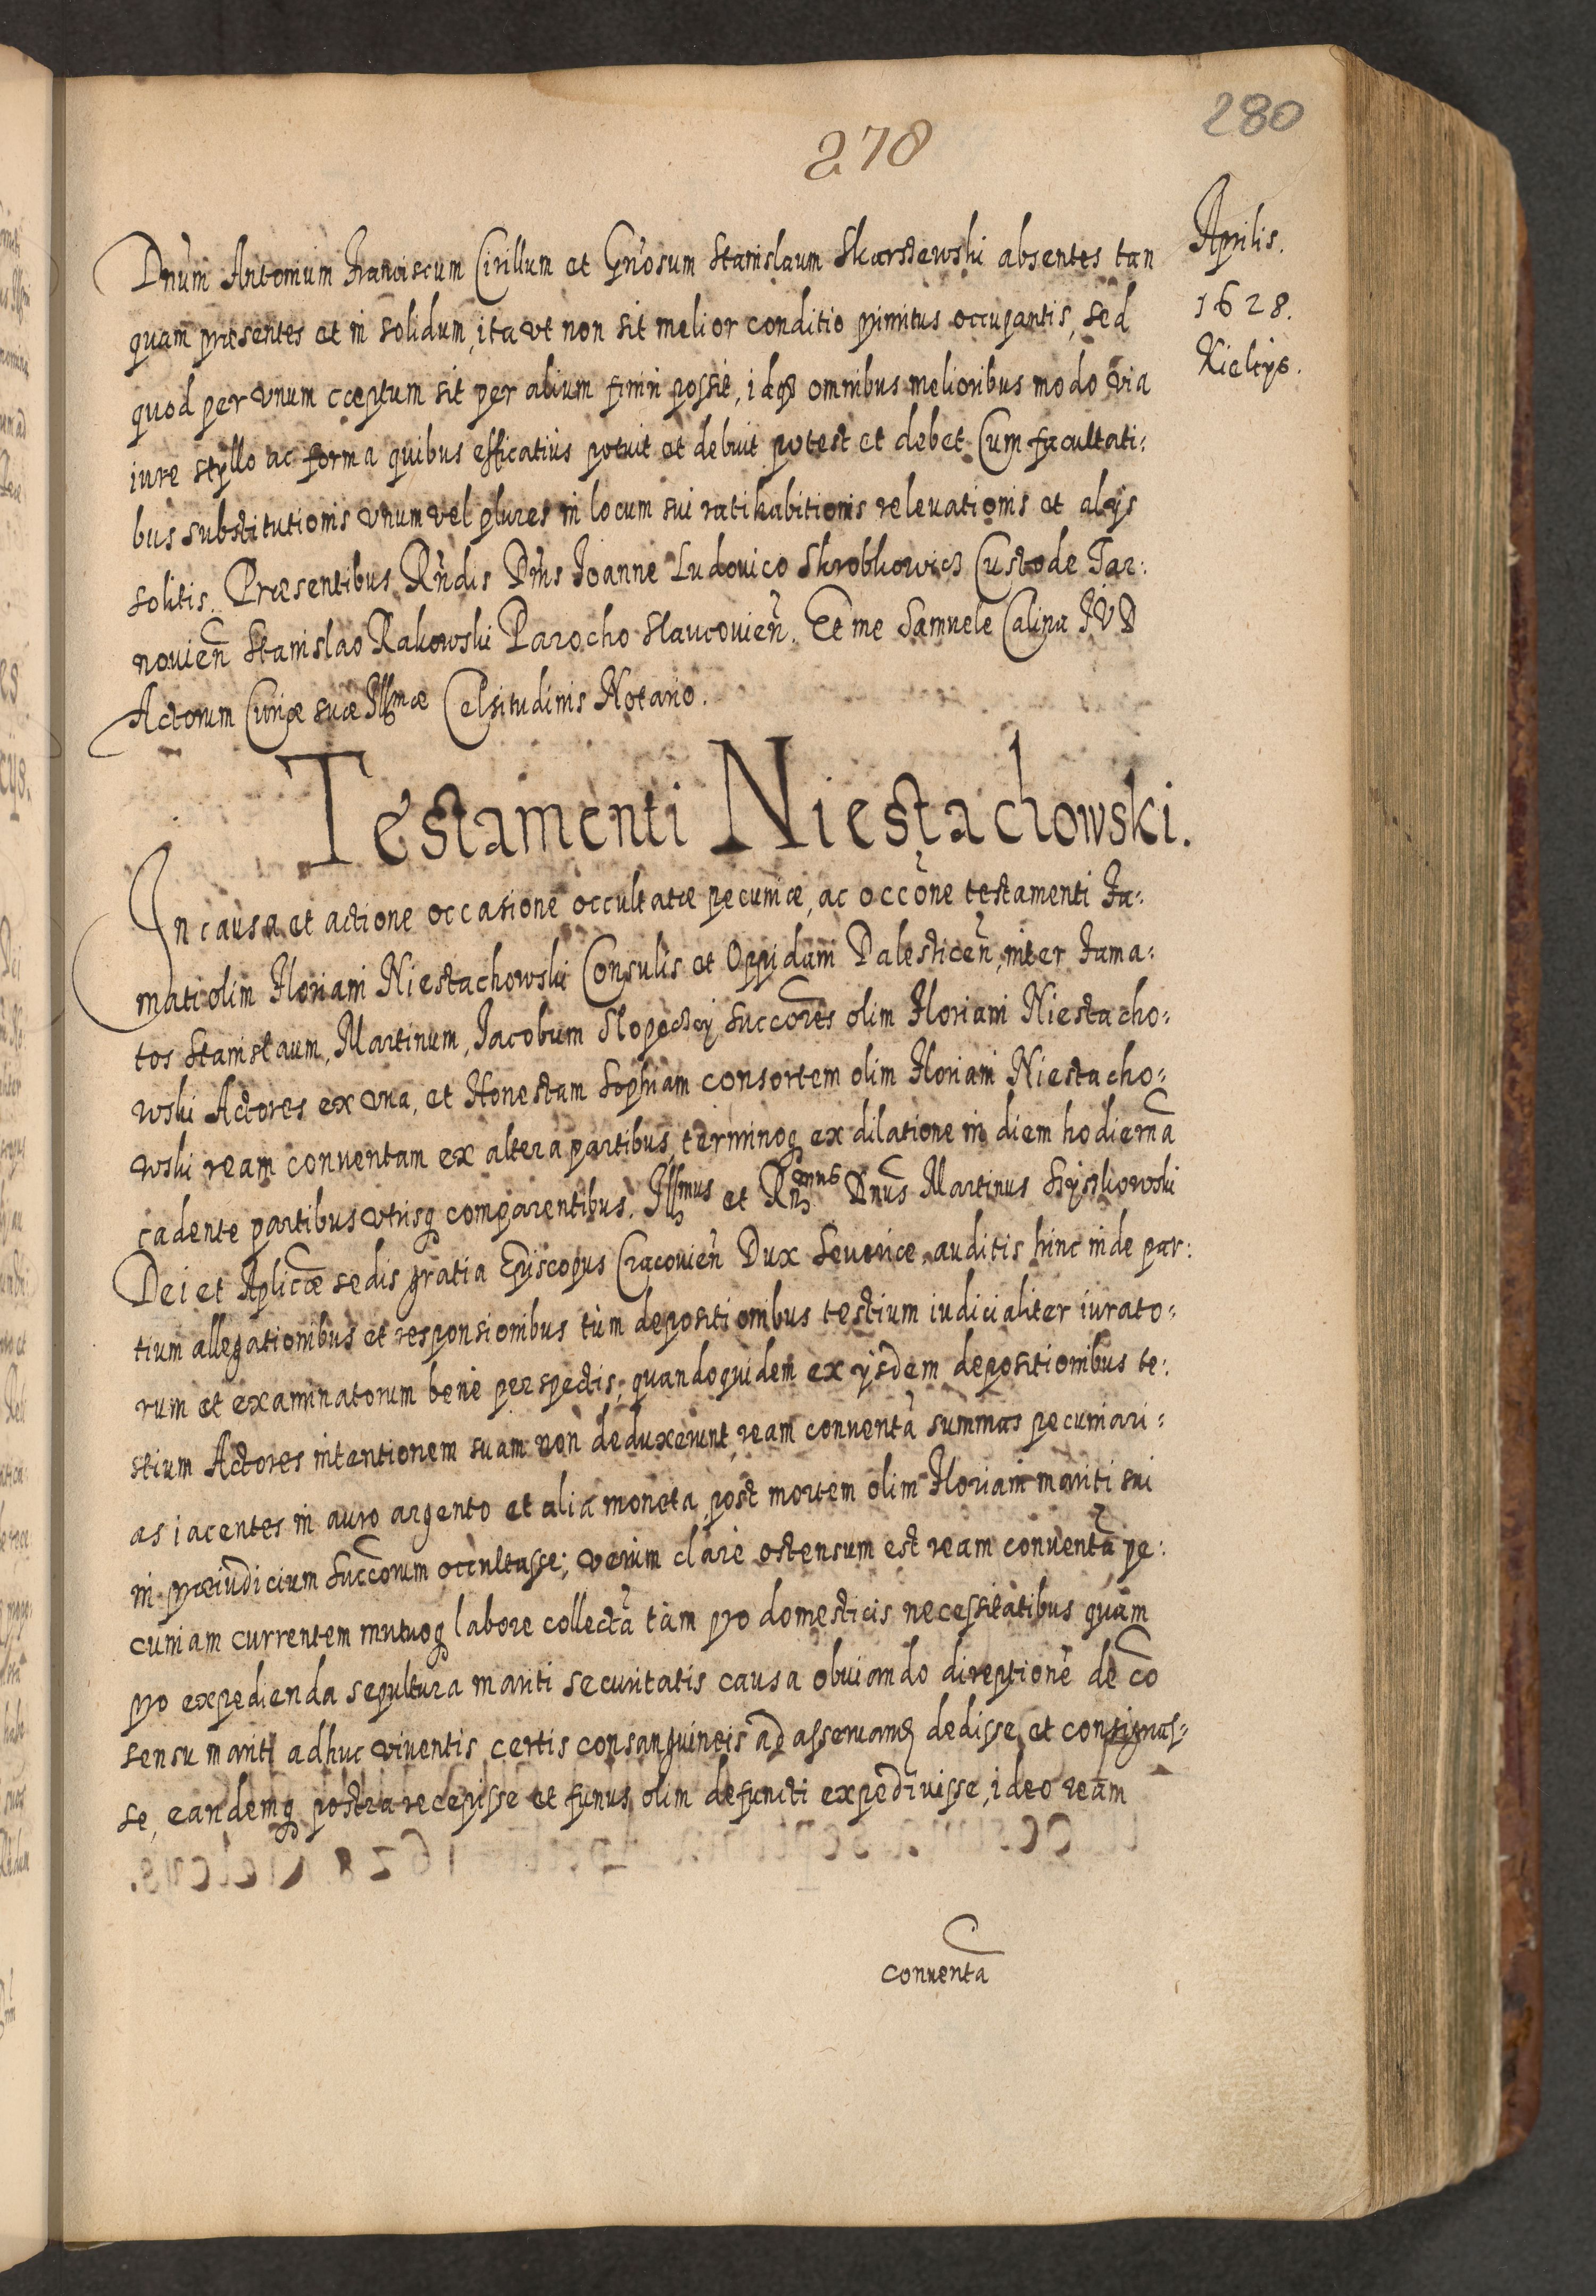 280
278
Aprilis.
1628.
Kielcijs.
Dnum Antonium Franciscum Cirillum et Gnosum Stanislaum Skarszewski absentes tan
quam præsentes et in solidum, ita vt non sit melior conditio primitus occupantis, sed
quod per vnum cæptum sit per alium finiri possit, idq3 omnibus melioribus modo via
iure styllo ac forma quibus efficatius potuit et debuit potest et debet Cum facultati:
bus substitutionis vnum vel plures in locum sui ratihabitionis releuationis et alijs
solitis. Præsentibus Rndis Dnis Joanne Ludouico Skrobkowicz Custode Tar:
nouien Stanislao Rakowski Parocho Slaucouien. Et me Samuele Calina JVD
Actorum Curiæ suæ Illmæ Celsitudinis Notario.
Testamenti Niestachowski.
In causa et actione occasione occultatæ pecuniæ, ac occone testamenti Fa:
mati olim Floriani Niestachowski Consulis et Oppidani Dalesticen, inter Fama:
tos Stanislaum, Martinum, Jacobum Slopeczcy Succores olim Floriani Niestacho:
wski Actores ex vna, et Honestam Sophiam consortem olim Floriani Niestacho:
wski ream conuentam ex altera partibus, terminoq ex dilatione in diem hodierna
cadente partibus vtrisq comparentibus. Illmus et Rndmus Dnus Martinus Szyszkowski
Dei et Aplicæ sedis gratia Episcopus Cracouien Dux Seueriæ, auditis hinc inde par:
tium allegationibus et responsionibus tum depositionibus testium iudicialiter iurato:
rum et examinatorum bene perspectis; quandoquidem ex ijsdem depositionibus te:
stium Actores intentionem suam non deduxerunt, ream conuenta summas pecuniari:
as iacentes in auro argento et alia moneta post mortem olim Floriani mariti sui
in præiudicium Succorum occultasse; verum clare ostensum est ream conuenta pe:
cuniam currentem mutuoq labore collecta tam pro domesticis necessitatibus quam
pro expedienda sepultura mariti securitatis causa obuiando direptione de co
sensu mariti adhuc viuentis certis consanguineis ad asseruand dedisse, et consignas:
se, eandemq postea recepisse et funus olim defuncti expediuisse, ideo ream
conuenta